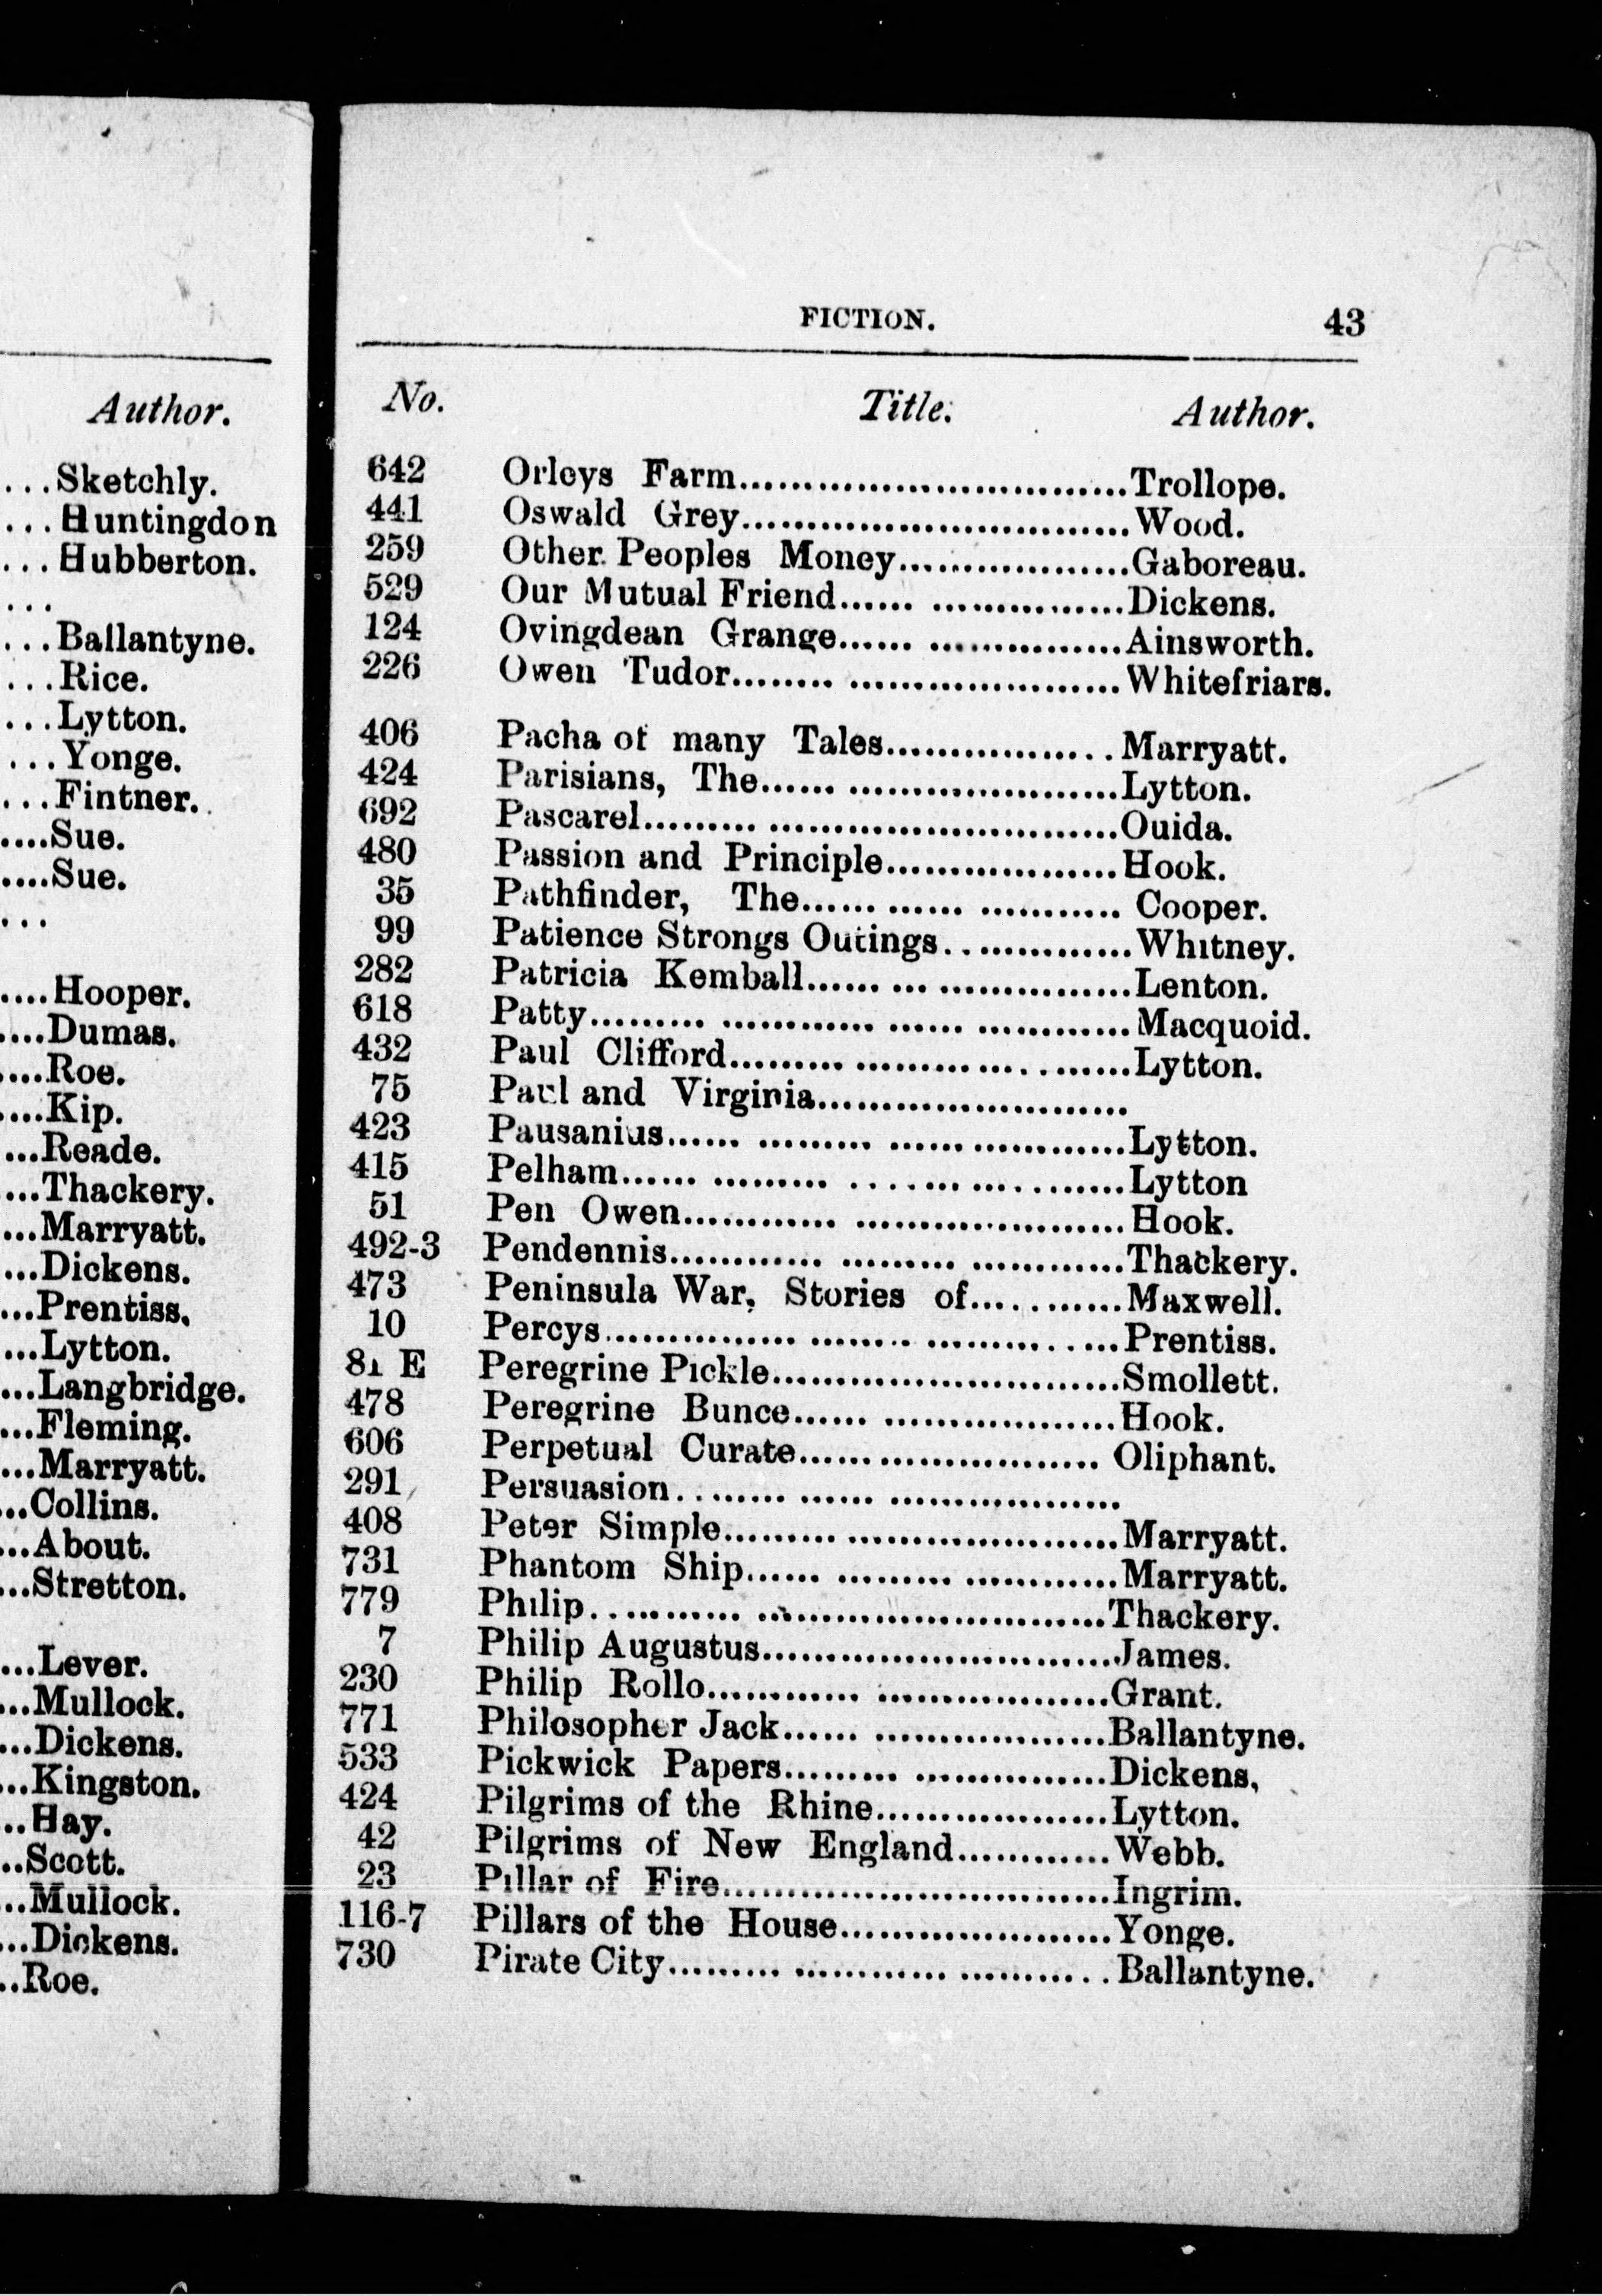 Author.
...Sketchly.
...Huntingdon
...Hubberton.
...
...Ballantyne.
...Rice.
...Lytton.
...Yonge.
...Fintner.
....Sue.
....Sue.
...
....Hooper.
....Dumas.
....Roe.
....Kip.
...Reade.
...Thackery.
...Marryatt.
...Dickens.
...Prentiss.
...Lytton.
...Langbridge.
...Fleming.
...Marryatt.
...Collins.
...About.
...Stretton.
...Lever.
...Mullock.
...Dickens.
...Kingston.
..Hay.
..Scott.
...Mullock.
...Dickens.
..Roe.
FICTION. 43
No. Title. Author.
642 Orleys Farm..............................Trollope.
441 Oswald Grey..............................Wood.
259 Other Peoples Money..................Gaboreau.
529 Our Mutual Friend...... ...............Dickens.
124 Ovingdean Grange...... ...............Ainsworth.
226 Owen Tudor........ .....................Whitefriars.
406 Pacha of many Tales..................Marryatt.
424 Parisians, The...... .....................Lytton.
692 Pascarel......... ...........................Ouida.
480 Passion and Principle..................Hook.
35 Pathfinder, The...... ...... ...........Cooper.
99 Patience Strongs Outings..............Whitney.
282 Patricia Kemball...... ... ...............Lenton.
618 Patty......... ............ ...... ............Macquoid.
432 Paul Clifford......... .....................Lytton.
75 Paul and Virginia........................
423 Pausanius...... ......... ...... ............Lytton.
415 Pelham...... ......... ......................Lytton
51 Pen Owen............ .....................Hook.
492-3 Pendennis............ ......... ............Thackery.
473 Peninsula War, Stories of............Maxwell.
10 Percys............... ........ ...............Prentiss.
81 E Peregrine Pickle...........................Smollett.
478 Peregrine Bunce...... ..................Hook.
606 Perpetual Curate........................ Oliphant.
291 Persuasion......... ...... ..................
408 Peter Simple......... .....................Marryatt.
731 Phantom Ship...... ......... ............Marryatt.
779 Philip............ ...........................Thackery.
7 Philip Augustus...........................James.
230 Philip Rollo............ ..................Grant.
771 Philosopher Jack...... ..................Ballantyne.
533 Pickwick Papers......... ...............Dickens,
424 Pilgrims of the Rhine..................Lytton.
42 Pilgrims of New England............Webb.
23 Pillar of Fire..............................Ingrim.
116-7 Pillars of the House.....................Yonge.
730 Pirate City......... ............ ............Ballantyne.